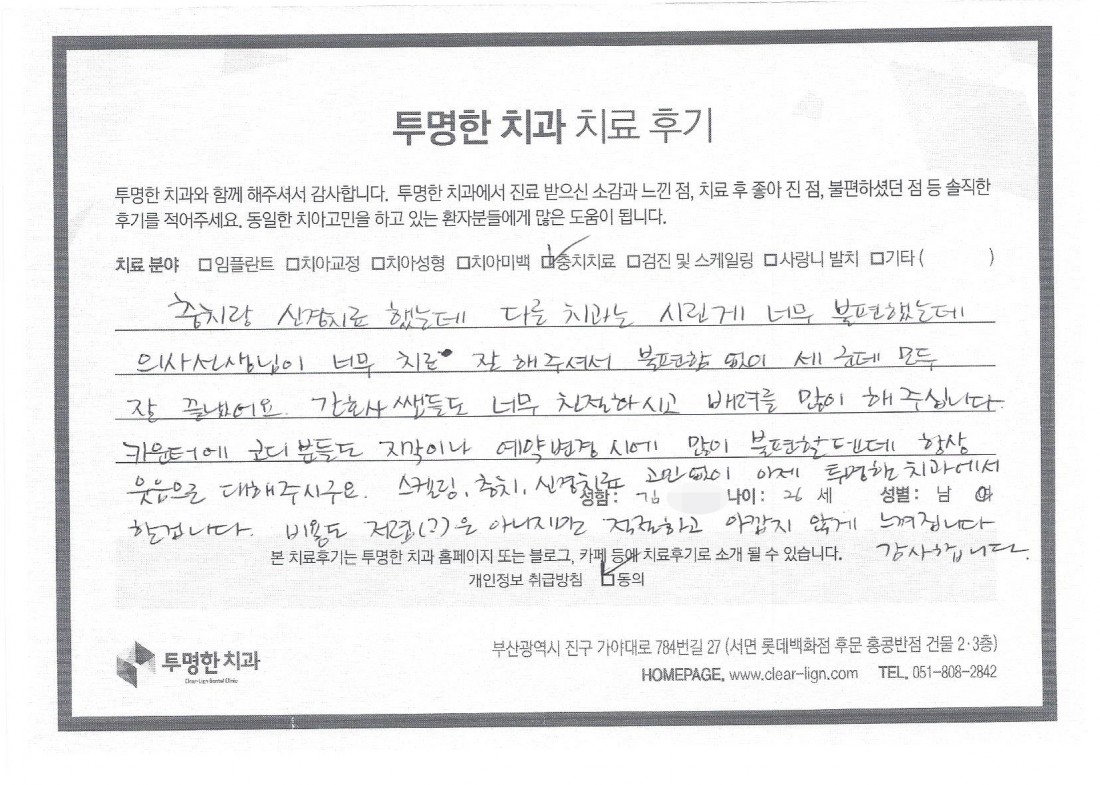 투명한 치과 치료 후기
투명한 치과와 함께 해주셔서 감사합니다. 투명한 치과에서 진료 받으신 소감과 느낀 점, 치료 후 좋아 진 점, 불편하셨던 점 등 솔직한
후기를 적어주세요. 동일한 치아고민을 하고 있는 환자분들에게 많은 도움이 됩니다.
치료 분야 □임플란트 □치아교정 □치아성형 □치아미백 ☑충치치료 □검진 및 스케일링 □사랑니 발치 □기타 ( )
충치랑 신경치료 했는데 다른 치과는 시린게 너무 불편했는데
의사선생님이 너무 치료 잘 해주셔서 불편함 없이 세 군데 모두
잘 끝냈어요. 간호사 쌤들도 너무 친절하시고 배려를 많이 해주십니다.
카운터에 코디분들도 지각이나 예약변경 시에 많이 불편할텐데 항상
웃음으로 대해주시구요. 스케링, 충치, 신경치료 고민없이 이제 투명한 치과에서
성함 : 김 나이 : 26 세 성별 : 남 여
할겁니다. 비용도 저렴(?)은 아니지만 적절하고 아깝지 않게 느껴집니다
감사합니다.
본 치료후기는 투명한 치과 홈페이지 또는 블로그, 카페 등에 치료후기로 소개 될 수 있습니다.
개인정보 취급방침 ☑동의
투명한 치과
Clear-Lign Dental Clinic
부산광역시 진구 가야대로 784번길 27 (서면 롯데백화점 후문 홍콩반점 건물 2·3층)
HOMEPAGE. www.clear-lign.com TEL. 051-808-2842